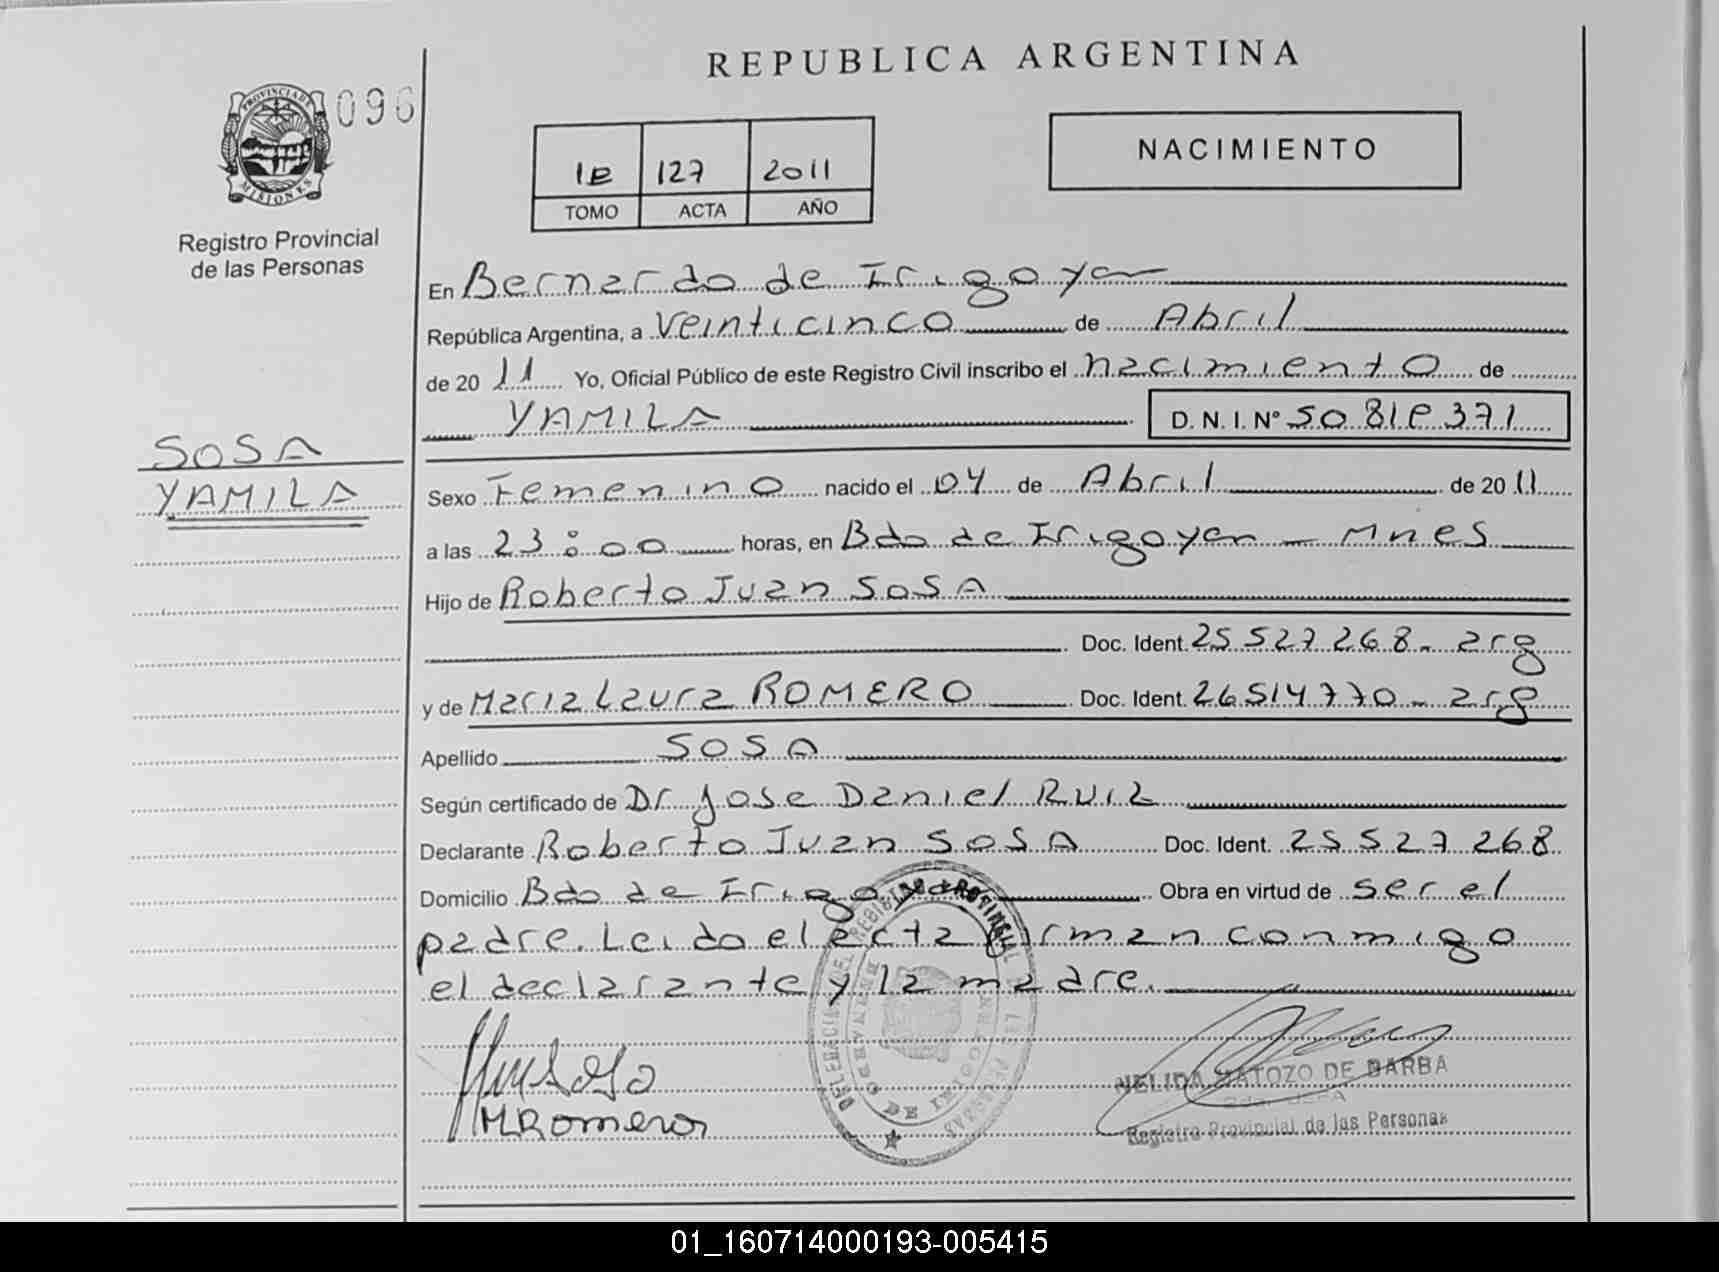 REPUBLICA ARGENTINA
096
PROVINCIA DE
MISIONES
Registro Provincial
de las Personas
127 2011
TOMO ACTA AÑO
NACIMIENTO
En Bernardo de Irigoyen
República Argentina, a Veinticinco de Abril
de 20 11 Yo, Oficial Público de este Registro Civil inscribo el nacimiento de
YAMILA D. N. I. Nº
SOSA
YAMILA
Sexo Femenino nacido el 04 de Abril de 20 11
a las 23:00 horas, en Bdo de Irigoyen - Mnes
Hijo de Roberto Juan SOSA
Doc. Ident. 25 527 268 - arg
y de Maria Laura ROMERO Doc. Ident. 26514770 - arg
Apellido SOSA
Según certificado de Dr Jose Daniel Ruiz
Declarante Roberto Juan SOSA Doc. Ident. 25 527 268
Domicilio Bdo de Irigoyen Obra en virtud de ser el
padre. Leido el acta firman conmigo
el declarante y la madre.
Sosa
M Romero
NELIDA MATOZO DE BARBA
Registro Provincial de las Personas
01_160714000193-005415